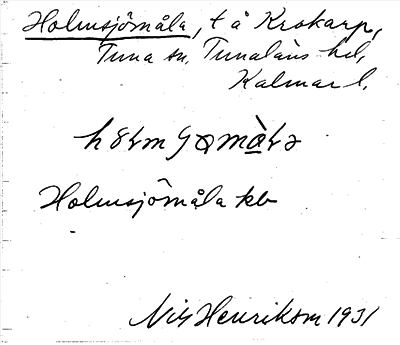 Holmsjömåla, t å Krokarp,
Tuna sn, Tunaläns hd,
Kalmar l.
Holmsjömåla kb
Nils Henriksson 1931